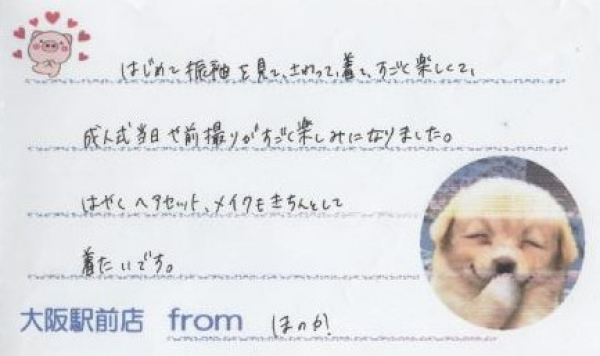 はじめて振袖を見て、さわって、着て、すごく楽しくて、
成人式当日や前撮りがすごく楽しみになりました。
はやくヘアセット、メイクもきちんとして
着たいです。
大阪駅前店 from ほのか!